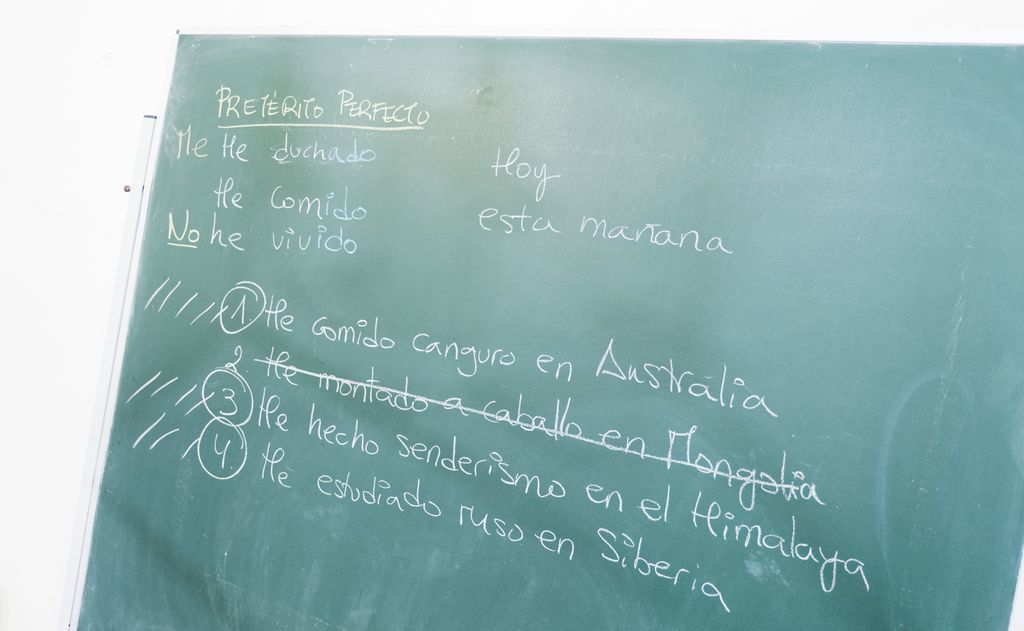 PRETÉRITO PERFECTO
Me He duchado
He comido
No he vivido
Hoy
esta mañana
1. He comido canguro en Austrália
2. He montado a caballo en Mongolia
3 He hecho senderismo en el Himalaya
4. He estudiado ruso en Siberia